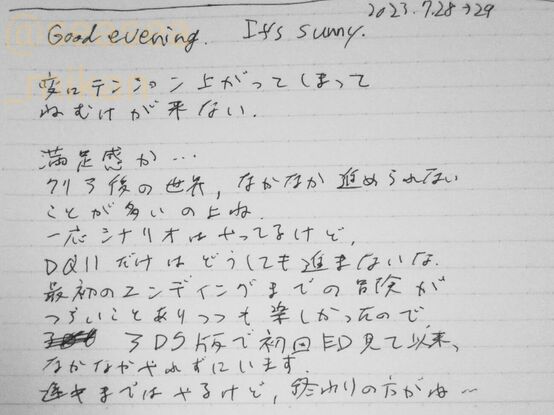 2023.7.28→29
Good evening. It's sunny.
変にテンション上がってしまって
ねむけが来ない.
満足感か…
クリア後の世界, なかなか進められない
ことが多いのよね.
一応シナリオはやってるけど,
DQ11だけはどうしても進まないな.
最初のエンディングまでの冒険が
つらいことありつつも楽しかったので,
3DS版で初回ED見て以来、
なかなかやれずにいます.
途中まではやるけど, 終わりの方がね…